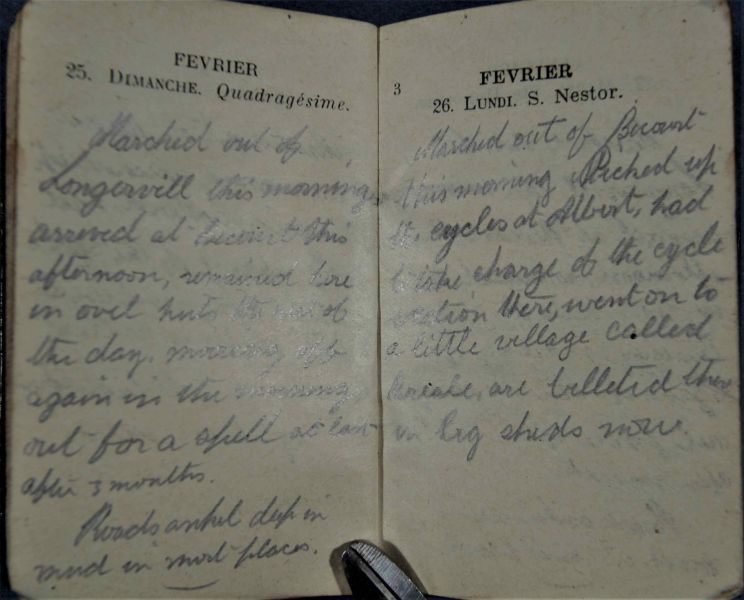 FEVRIER
25. DIMANCHE. Quadragésime.
Marched out of
Longervill this morning,
arrived at Becourt this
afternoon, remained here
in ovel huts the rest of
the day. moving off
again in the morning,
out for a spell at last
after 3 months.
Roads ankel deep in
mud in most places.
3
FEVRIER
26. LUNDI. S. Nestor.
Marched out of Becourt
this morning Picked up
cycles at Albert, had
to take charge of the cycle
section there, went on to
a little village called
are billeted there
in big sheds now.